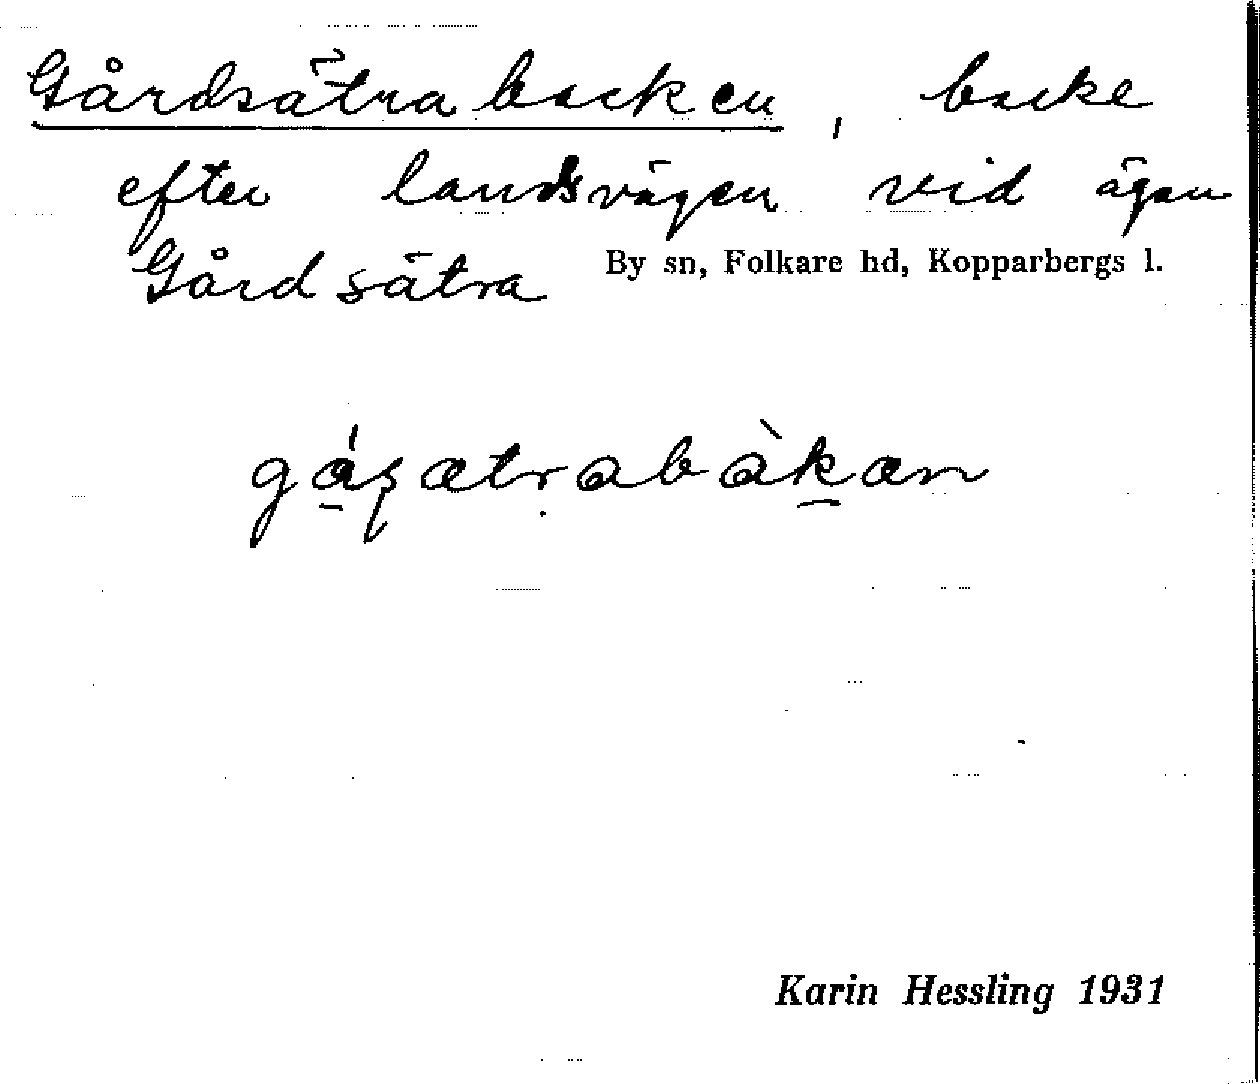 Gårdsätrabacken, backe
efter landsvägen vid ägan
Gårdsätra By sn, Folkare hd, Kopparbergs l.
Karin Hessling 1931